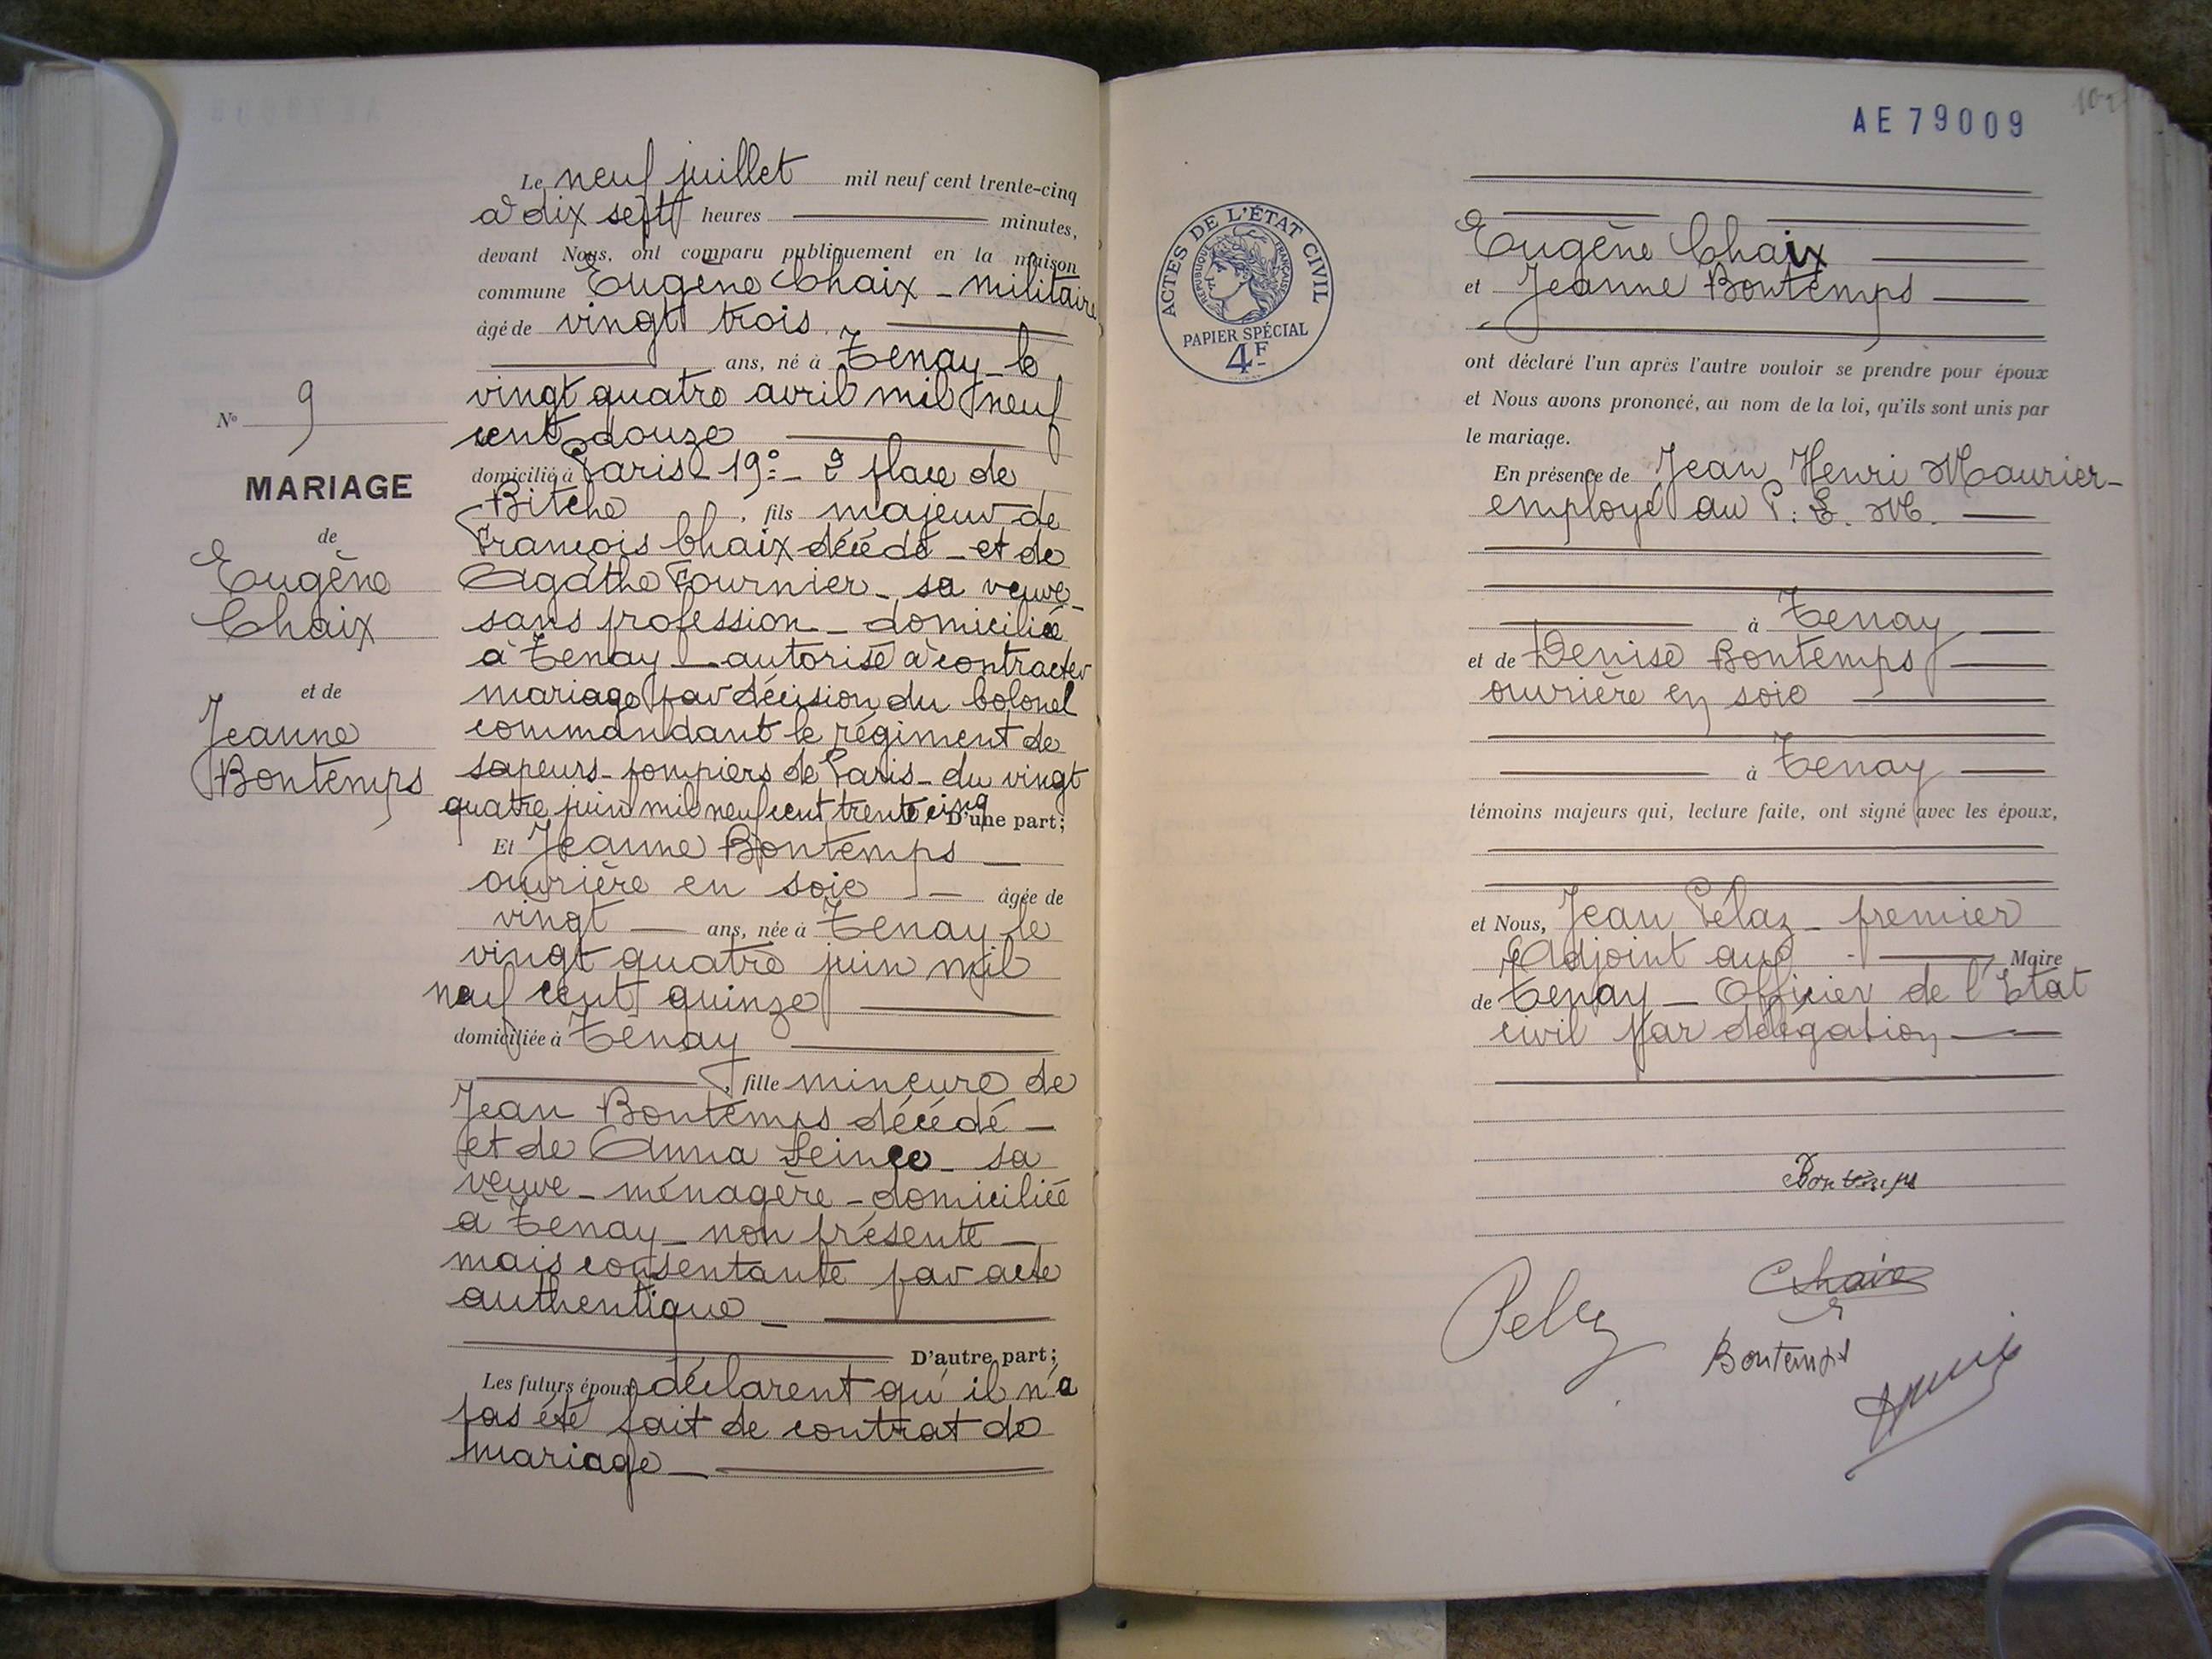 Le neuf juillet mil neuf cent trente-cinq
à dix sept heures minutes,
devant Nous, ont comparu publiquement en la maison
commune Eugène Chaix - militaire
âgé de vingt trois
ans, né à Tenay - le
vingt quatre avril mil neuf
cent douze
domicilié à Paris - 19e - place de
Bitche, fils majeur de
François Chaix décédé - et de
Agathe Fournier - sa veuve -
sans profession - domiciliée
à Tenay - autorisé à contracter
mariage par décision du Colonel
commandant le régiment de
sapeurs-pompiers de Paris - du vingt
quatre juin mil neuf cent trente cinq D'une part;
Et Jeanne Bontemps -
ouvrière en soie - âgée de
vingt - ans, née à Tenay le
vingt quatre juin mil
neuf cent quinze
domiciliée à Tenay
, fille mineure de
Jean Bontemps décédé -
et de Anna - sa
veuve - ménagère - domiciliée
à Tenay - non présente -
mais consentante par acte
authentique -
D'autre part;
Les futurs époux déclarent qu'il n'a
pas été fait de contrat de
mariage -
No 9
MARIAGE
de
Eugène
Chaix
et de
Jeanne
Bontemps
AE 79009
ACTES DE L'ÉTAT CIVIL
RÉPUBLIQUE FRANÇAISE
PAPIER SPÉCIAL
4F
Eugène Chaix
et Jeanne Bontemps
ont déclaré l'un après l'autre vouloir se prendre pour époux
et Nous avons prononcé, au nom de la loi, qu'ils sont unis par
le mariage.
En présence de Jean Henri Maurier -
employé au P. L. M.
à Tenay
et de Denise Bontemps
ouvrière en soie
à Tenay
témoins majeurs qui, lecture faite, ont signé avec les époux,
et Nous, Jean Pélaz - premier
Adjoint au Maire
de Tenay - Officier de l'Etat
civil par délégation
Bontemps
Chaix
Pelaz
Bontemps